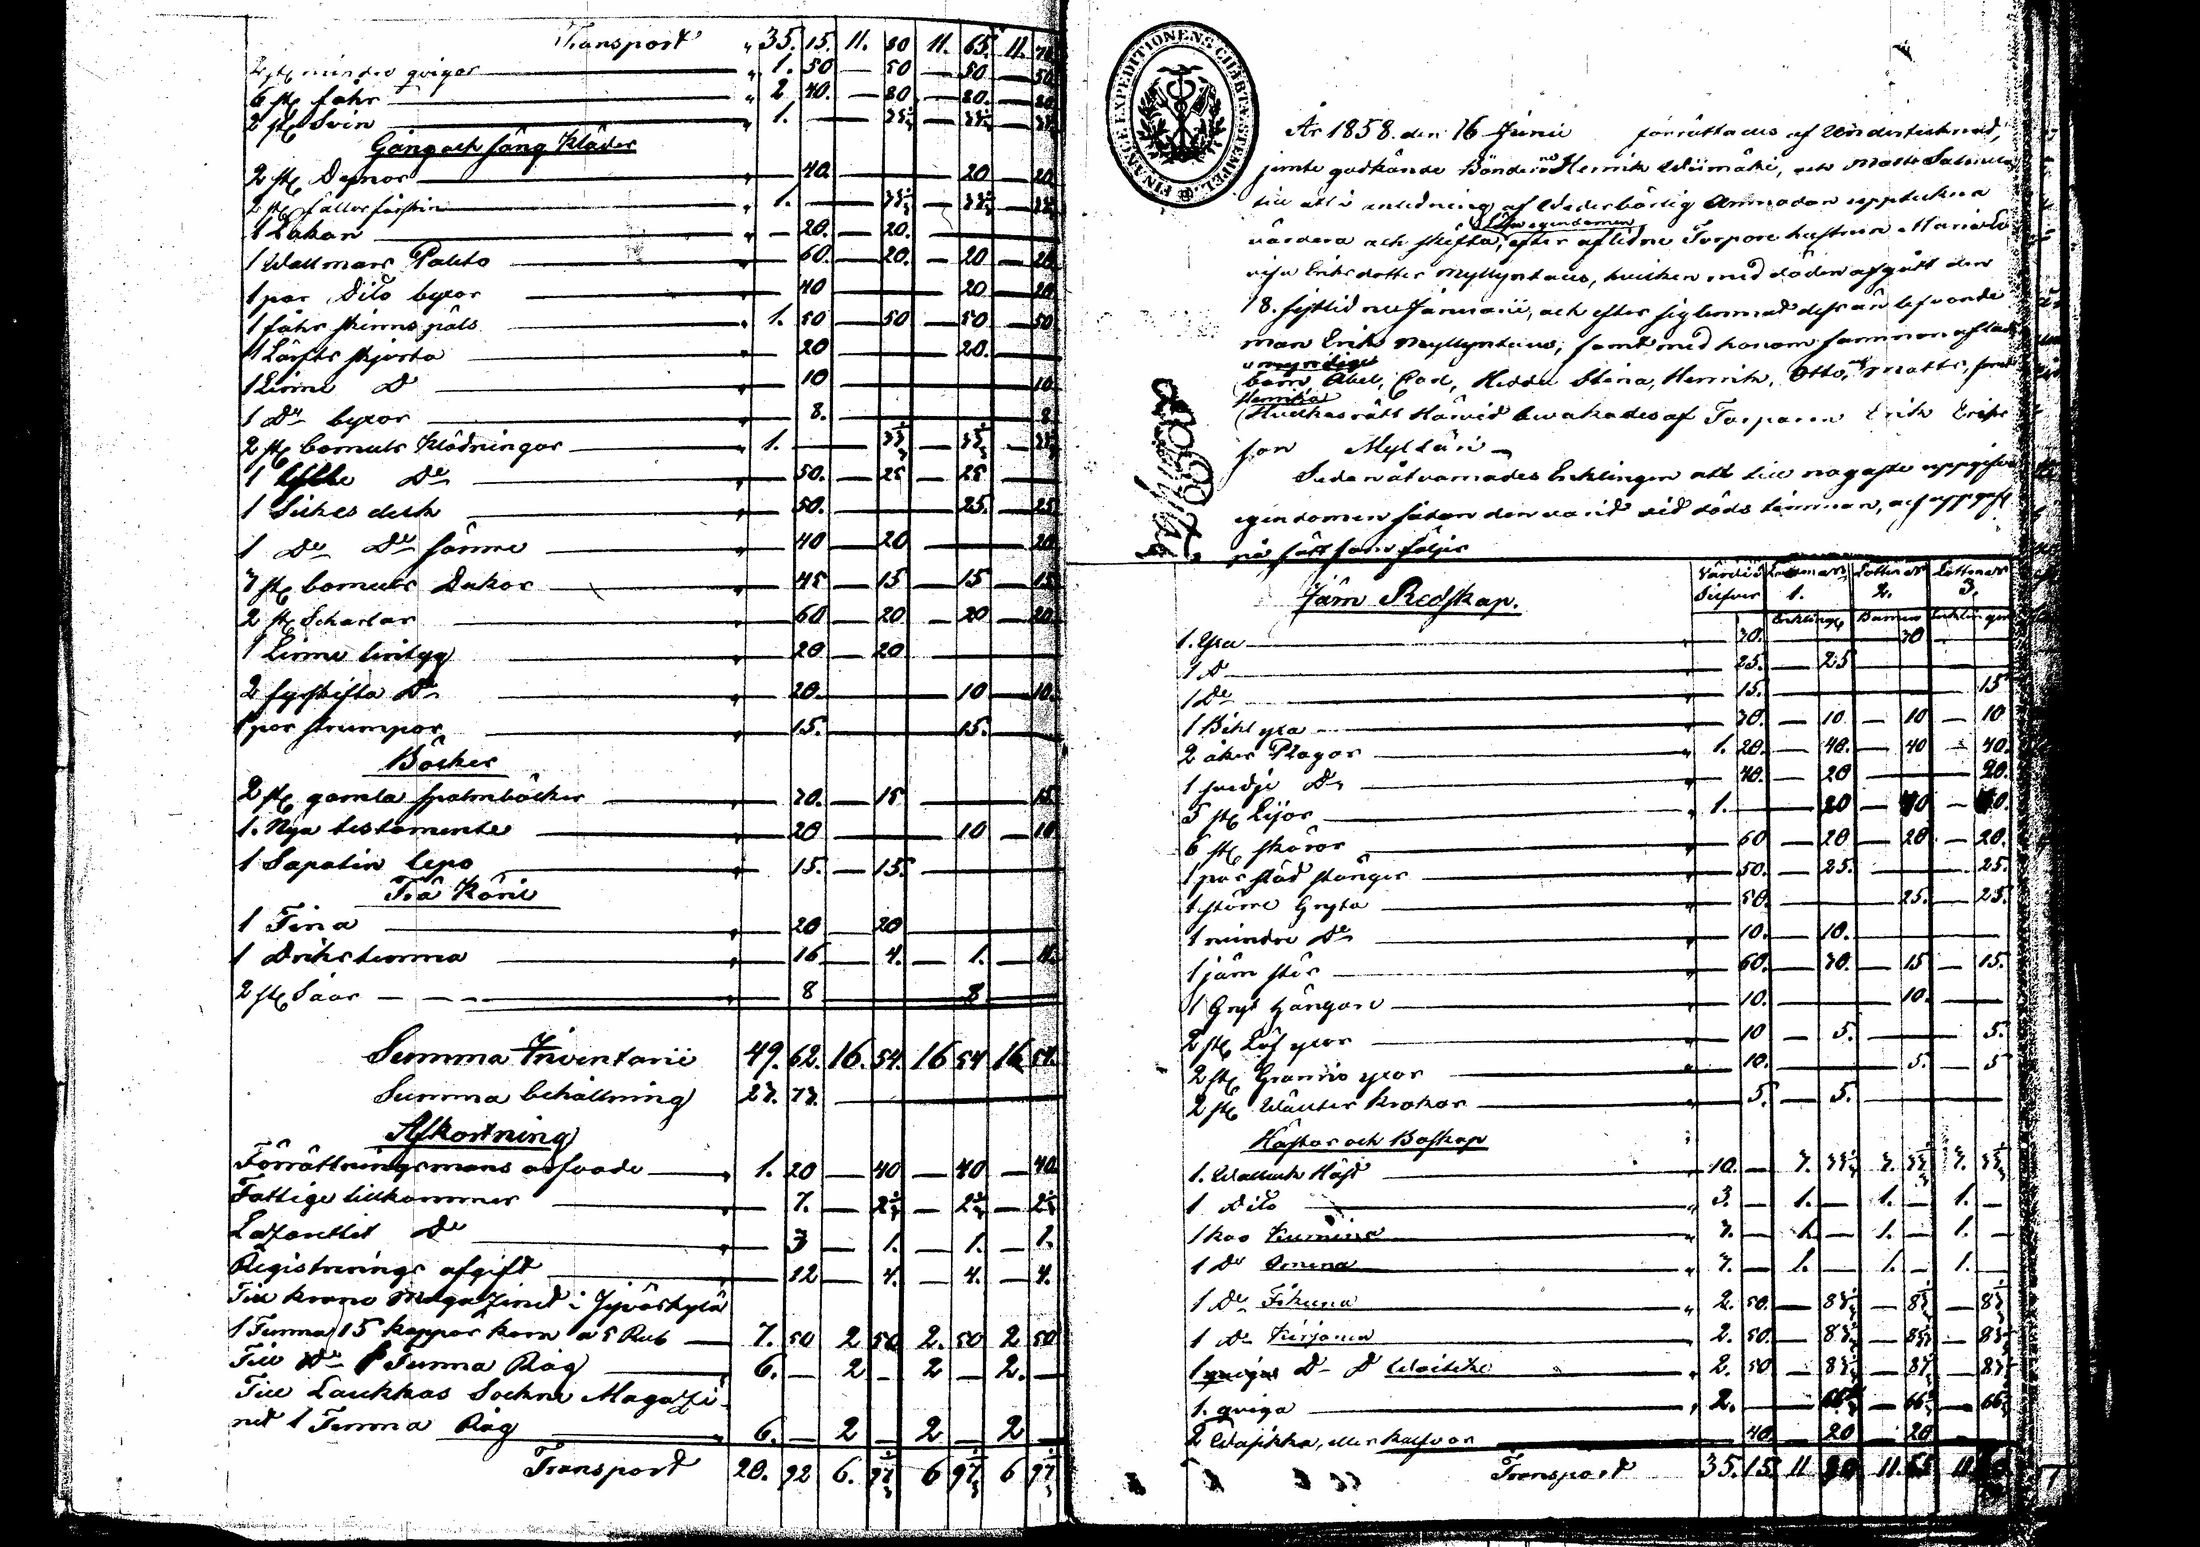 Transport " 35. 15. 11. 80 11. 65. 11. 70
2 st mindre qvigor " 1. 50 — 50 — 50 — 50
6 st fåhr " 2 40. — 80 — 80. — 80
2 st Svin " 1. — 33⅓ — 33⅓ — 33⅓
Gång och säng Kläder
2 st Dynor 40. 20 20
2 st fällar fårskin 1. — 33⅓ — 33⅓ — 33⅓
1 Lakan — 20. — 20.
1 Wallmars Palito 60. — 20. — 20 — 20
1 par Dito byxor 40 20 20
1 fåhr skinns päls 1. 50 50 50 — 50
1 Lärfts skjorta 20 20.
1 Linne D 10 10
1 Do byxor 8. 8
2 st bomuls Klädningar 1. 33⅓ — 33⅓ — 33⅓
1 Do 50. — 25 — 25
1 Silkes duk 50. 25. — 25
1 Do Do sämre 40 20 20
7 st bomuls Dukar 45 — 15 — 15 — 15
2 st Scharlar 60 — 20 — 20 — 20
1 Linne lintyg 20 — 20
2 fyskifta Do 20. 10 — 10.
1 par strumpor 15. 15.
Böcker
2 st gamla psalmböcker 30. — 15 15
1. Nya testamente 20 10 — 10
1 Sapatin lepo 15. — 15.
Trä Käril
1 Tina 20 20
1 Drikstunna 16 — 4. — 1. — 11.
2 st Såar 8 8
Summa Inventarii 49. 62. 16. 54. 16 54 16 54.
Summa behållning 27. 77.
Afkortning
Förrättningsmans arfvode 1. 20 — 40 — 40 — 40
Fattige tillkommer 7. — 2⅓ — 2⅓ — 2⅓
Lazarettet Do 3 — 1. — 1. — 1.
Registrerings afgift 12 — 4. — 4. — 4.
Till Krono Magazinet i Jyväskylä
1 Tunna 15 kappar korn a 5 Rub 7. 50 2 50 2. 50 2 50
Till Do 1 Tunna Råg 6. — 2 — 2 — 2. —
Till Laukkas Sockne Magazi
net 1 Tunna Råg 6. — 2 — 2 — 2 —
Transport 20. 92 6. 97⅓ 6 97⅓ 6 97⅓
FINANCE EXPEDITIONENS CHARTÆ STEMPEL
År 1858. den 16 Junii förrättades af Undertecknad,
jemte godkände Bönderne Henrik Wiimäki, och Matts
till att i anledning af Wederbörlig Anmodan uppteckna
värdera och skifta, Qvaregendomen efter aflidne Torpare hustrun Maria
Eriksdotter Myllyntaus, hvilken med döden afgått den
18. sistlidne Januarii, och efter sig lemnad dess än lefvande
man Erik Myllyntaus, samt med honom samman aflade
omyndige
barn, Abel, Carl, Hedda Stina, Henrik, Otto, Matts, samt
Henrika
Hvilkas rätt härvid bevakades af Torparen Erik Eriks
son
Sedan åtvarnades Enklingen att till nogaste uppgifva
egendomen sådan den varit vid döds timman, och uppgaf
på sätt som följer
Järn Redskap.
Värdi Silfver Lotten No 1. Lotten No 2. Lotten No 3.
Enklingen Barnen Enklingen
1. Yxa 30. 30
1 D 25. — 25
1 Do 15. 15
1 Bihl yxa 30. — 10 — 10 — 10
2 åker Plogar 1. 20. — 40. — 40 — 40.
1 svedje Do 40. — 20 20.
5 st Lijor 1. 20 40 — 40.
6 st skäror 60 — 20 — 20 — 20.
1 par städ stänger 50. — 25. 25.
1 större Gryta 50. 25. — 25
1 mindre Do 10. — 10.
1 järn stör 60. — 30. — 15 — 15.
1 Gryt hängare 10. 10.
2 st Löf yxor 10 — 5. 5.
2 st Grannis yxor 10. 5. — 5
2 st Wälter krokar 5. — 5.
Hästar och Boskap
1. Wallack Häst 10. — 3. 33⅓ 3. 33⅓ 3. 33⅓
1 Dito 3. — 1. — 1. — 1. —
1 ko 3. — 1. — 1. — 1. —
1 Do Omena 3. — 1. — 1. — 1.
1 Do Tikuna 2. 50. — 83⅓ — 83⅓ — 83⅓
1 Do Kirjana 2. 50 — 83⅓ — 83⅓ — 83⅓
1 D D 2. 50 — 83⅓ — 83⅓ — 83⅓
1. qviga 2. 66⅔ — 66⅔ — 66⅔
2 Wasikka, eller kalfvar 40. 20 20
Transport 35. 15. 11 80 11. 65 11.